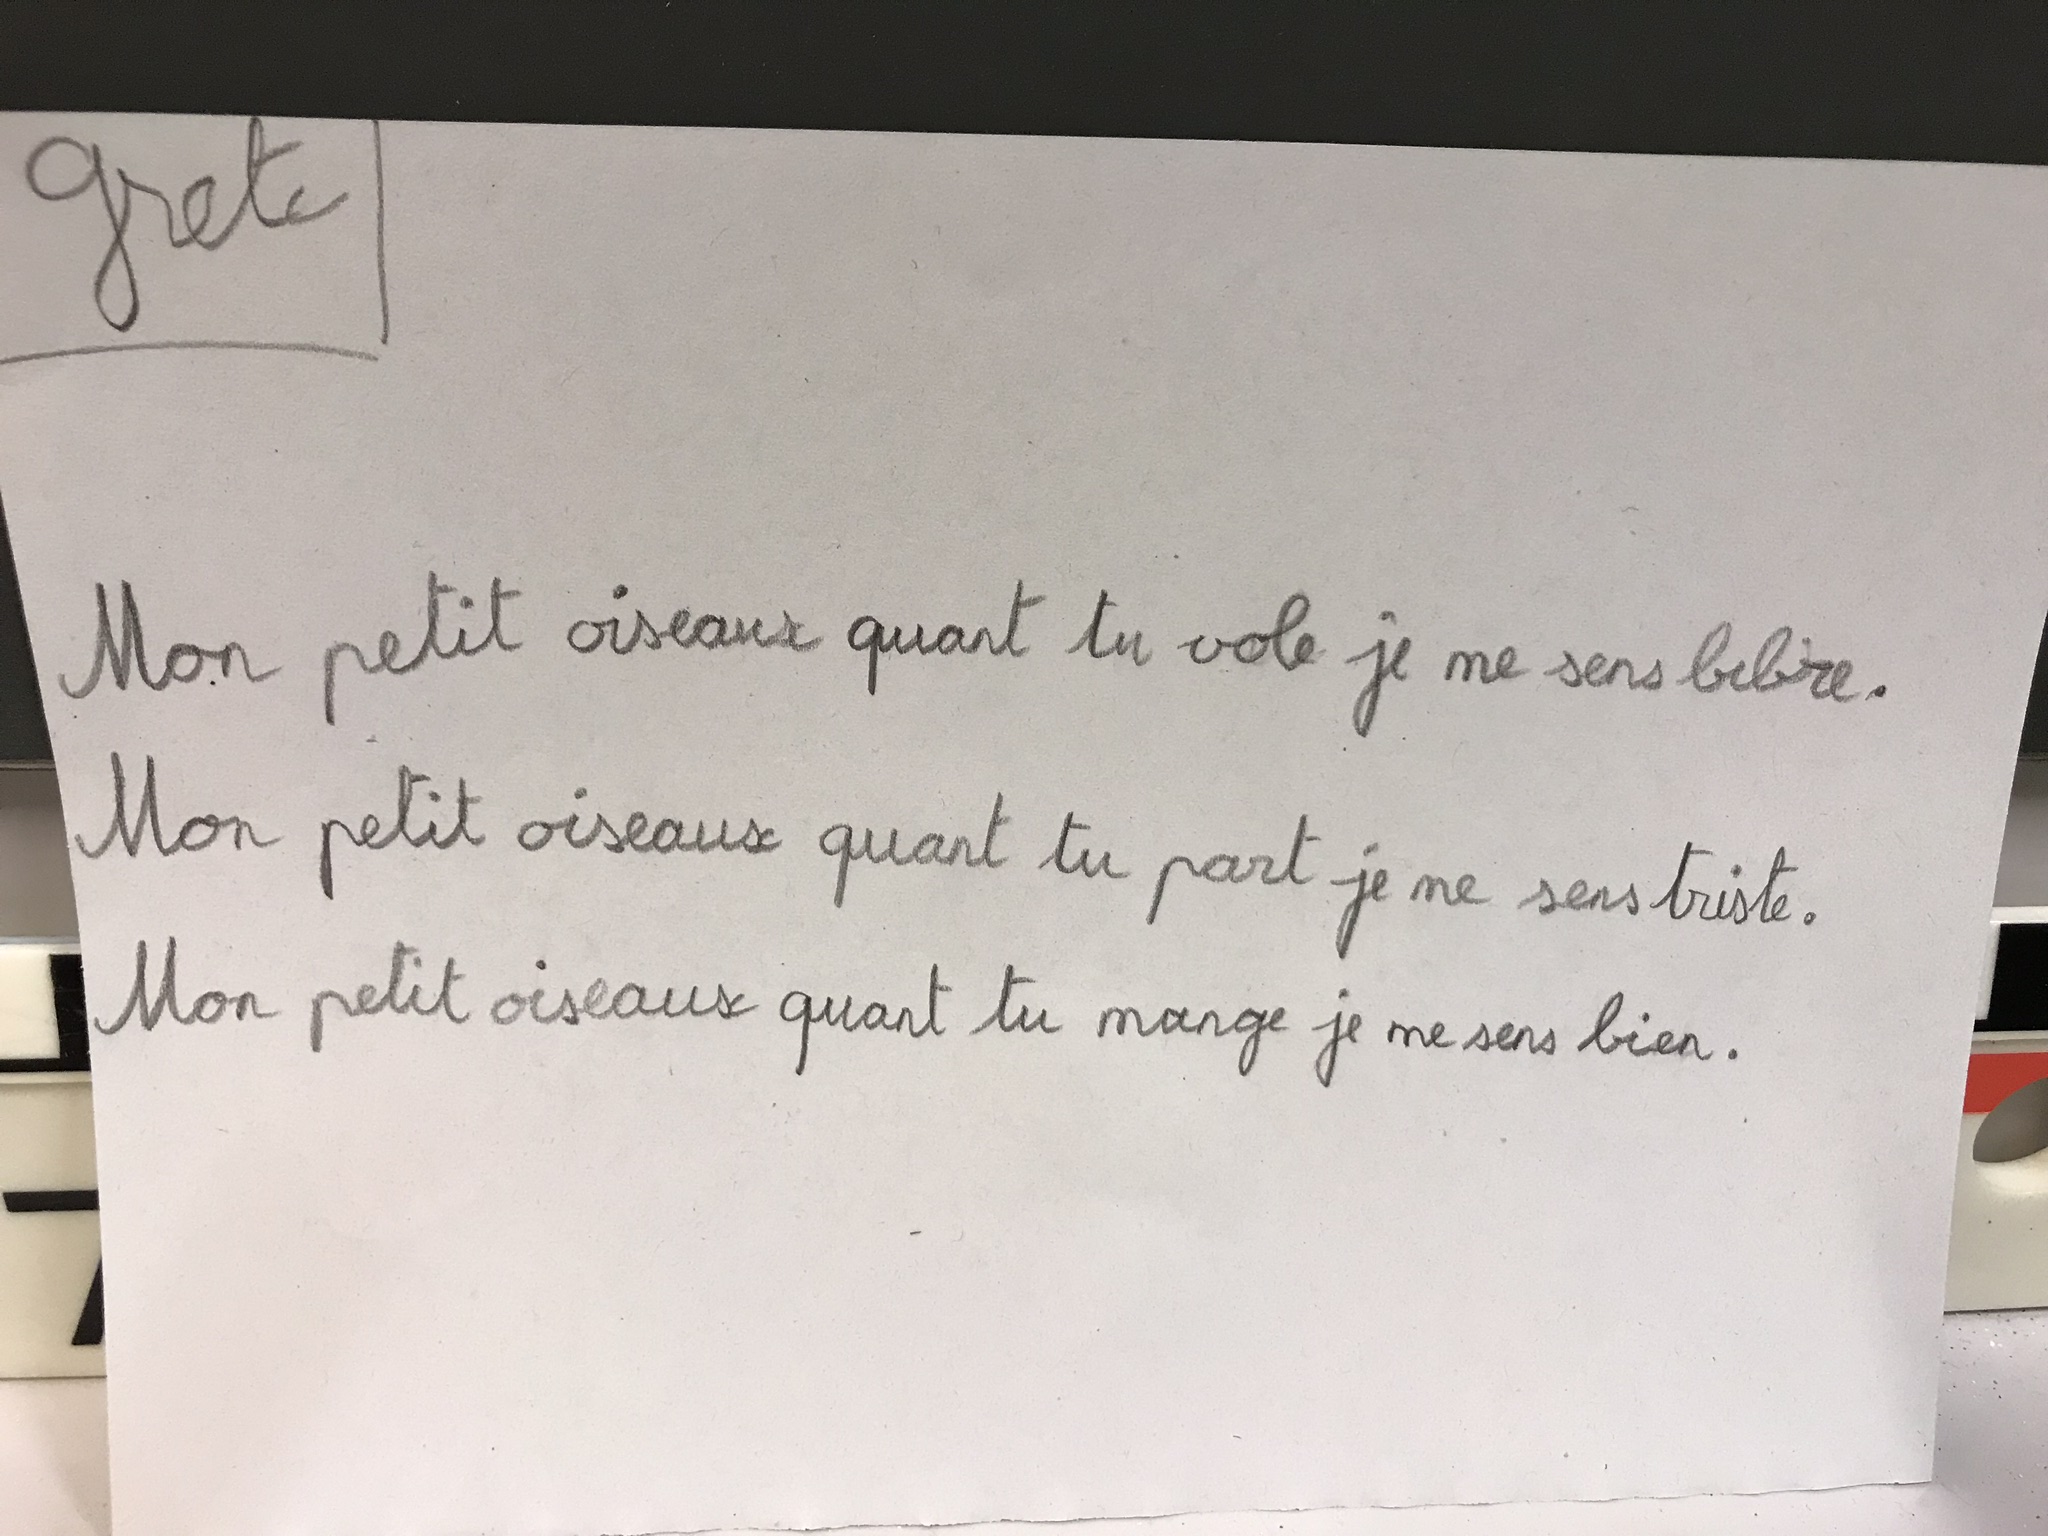 Grete
Mon petit oiseaux quant tu vole je me sens
Mon petit oiseaux quant tu part je me sens triste.
Mon petit oiseaux quant tu mange je me sens bien.